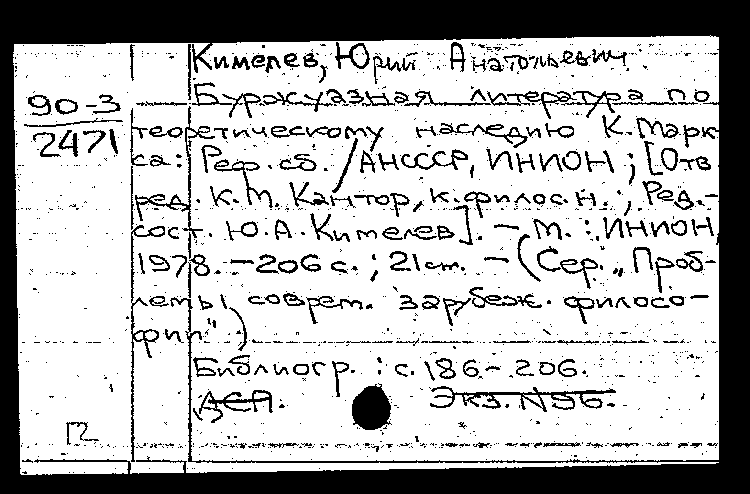 Кимелев, Юрий Анатольевич.
90-3
2471
Буржуазная литература по
теоретическому наследию К. Марк-
са: Реф. сб. / АНСССР, ИНИОН ; [Отв.
ред. К. М. Кантор, к. филос. н. ; Ред.-
сост. Ю. А. Кимелев]. – М. : ИНИОН,
1978. – 206 с. ; 21 см. – (Сер. „Проб-
лемы соврем. зарубеж. филосо-
фии").
Библиогр. : с. 186 – 206.
ДСП. Экз. N 96.